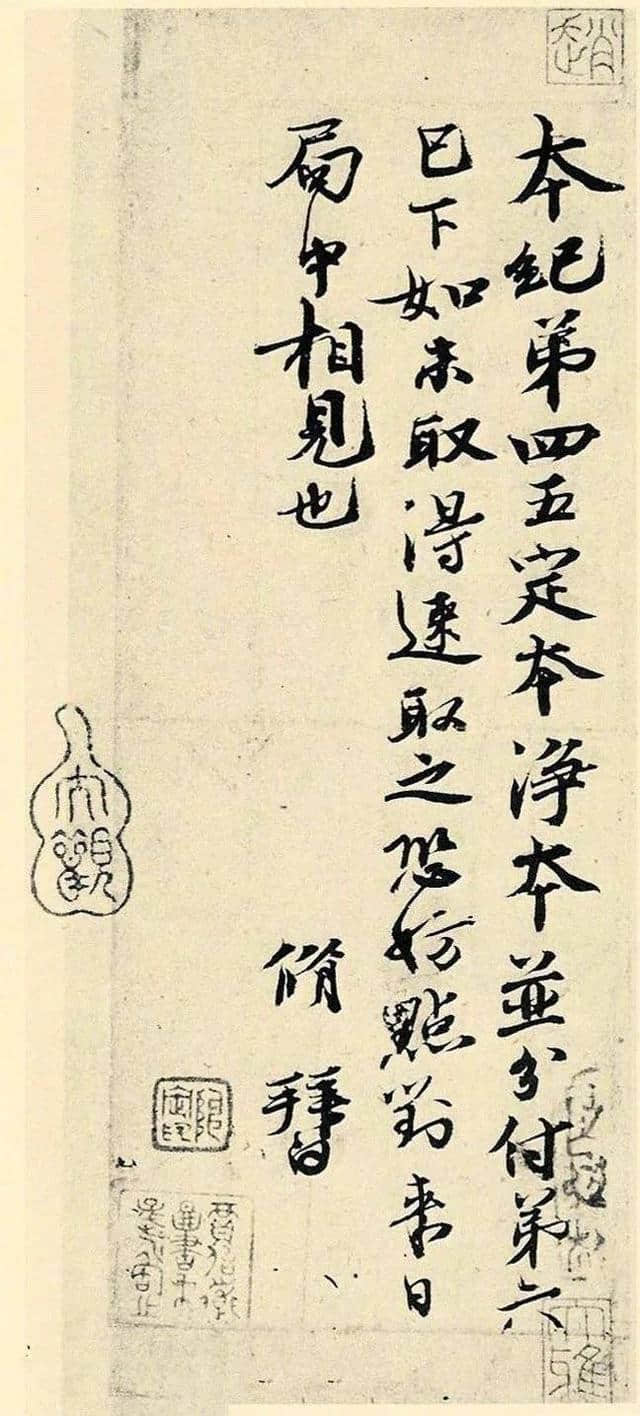 趙
本紀第四五定本淨本並分付第六
已下如未取得速取之恐妨點對來日
局中相見也
脩 拜白
大雅
大觀